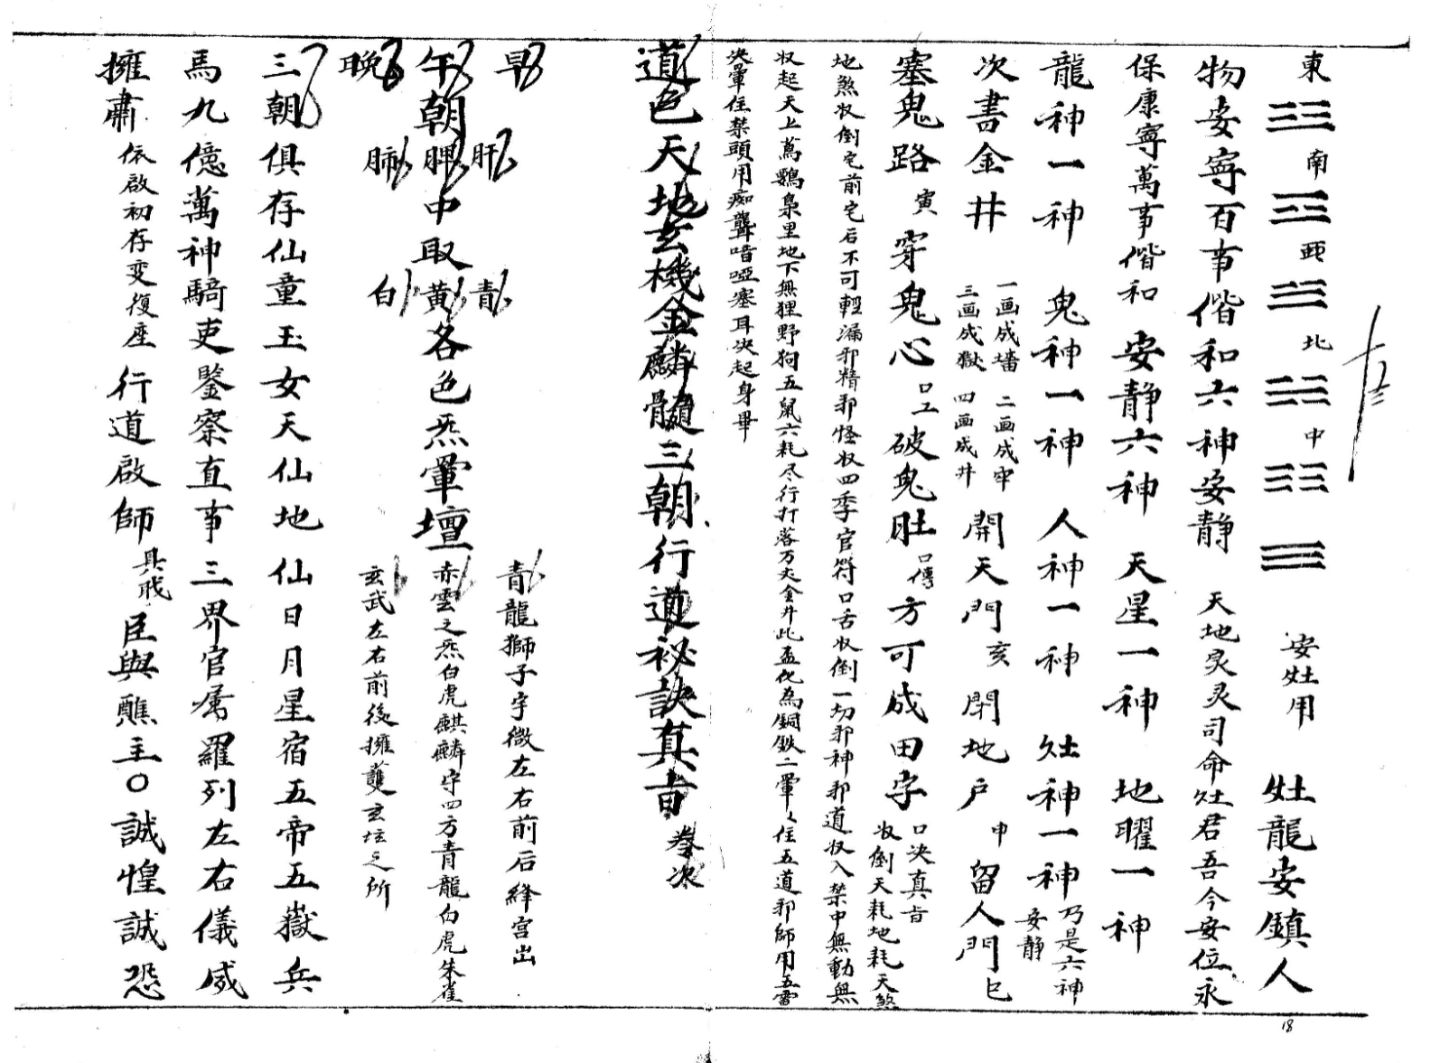 東 ☳ 南 ☲ 西 北 中 安灶用 天地炅炅司命灶君吾今安位永 灶龍安鎮人
物安寧百事偕和六神安静
保康寧萬事偕和 安静六神 天星一神 地曜一神
龍神一神 鬼神一神 人神一神 灶神一神 乃是六神安静
次書金井 一画成墙 二画成牢 三画成獄 四画成井 開天門 亥 閉地户 申 留人門 巳
塞鬼路 寅 穿鬼心 口工 破鬼肚 口傳 方可成田字 口决真旨 收倒天耗地耗天煞
地煞收倒宅前宅后不可輕漏邪精邪怪收四季官符口舌收倒一切邪神邪道収入禁中無動無
収起天上蔦鴞梟里地下無狸野狗五鼠六耗尽行打落万丈金井此盖化為銅鉄二罩〻住五道邪師用五雷
决罩住禁頭用痴聾喑啞塞耳决起身畢
道色天地玄機金麟髓三朝行道祕訣真旨 卷次
早 肝 青 青龍獅子守徼左右前后絳宫出
午朝脾中取黄各色炁罩壇 赤雲之炁白虎麒麟守四方青龍白虎朱雀
晚 肺 白 玄武左右前後擁護玄坛之所
三朝俱存仙童玉女天仙地仙日月星宿五帝五嶽兵
馬九億萬神騎吏鑒察直事三界官属羅列左右儀威
擁肅 依啟初存变復座 行道啟師 具戒 臣與醮主〇誠惶誠恐
18